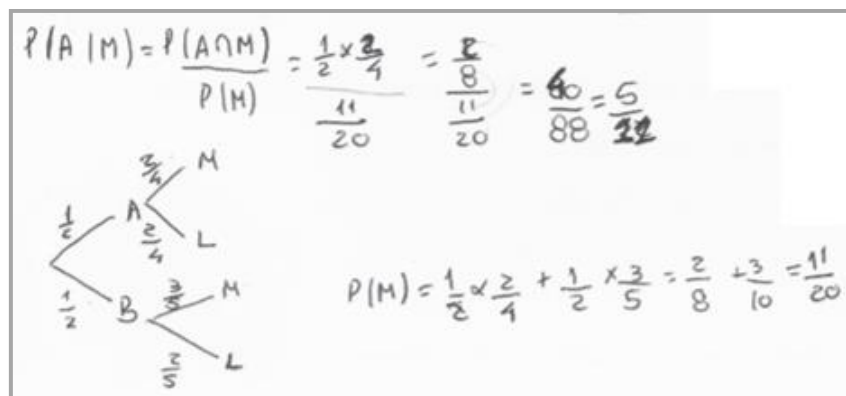 P(A|M) = P(A∩M)/P(M) = (1/2 × 2/4)/(11/20) = (2/8)/(11/20) = 40/88 = 5/
2/4 M
1/2 A
2/4 L
1/2 B 3/5 M
2/5 L
P(M) = 1/2 × 2/4 + 1/2 × 3/5 = 2/8 + 3/10 = 11/20